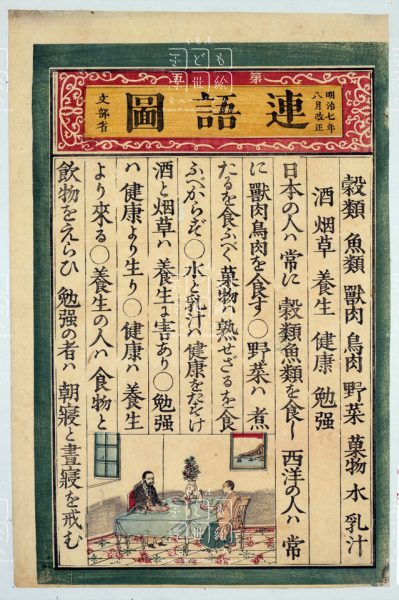 第五
連語圖
明治七年
八月改正
文部省
穀類 魚類 獸肉 鳥肉 野菜 菓物 水 乳汁
酒 烟草 養生 健康 勉强
日本の人ハ 常に 穀類魚類を食し 西洋の人ハ 常
に 獸肉鳥肉を食す○野菜ハ 煮
たるを食ふべく 菓物ハ熟せざるを食
ふべからず○水と乳汁ハ 健康をたすけ
酒と烟草ハ 養生に害あり○勉强
ハ 健康より生り○健康ハ 養生
より來る○養生の人ハ 食物と
飮物をえらひ 勉强の者ハ 朝寢と晝寢を戒む